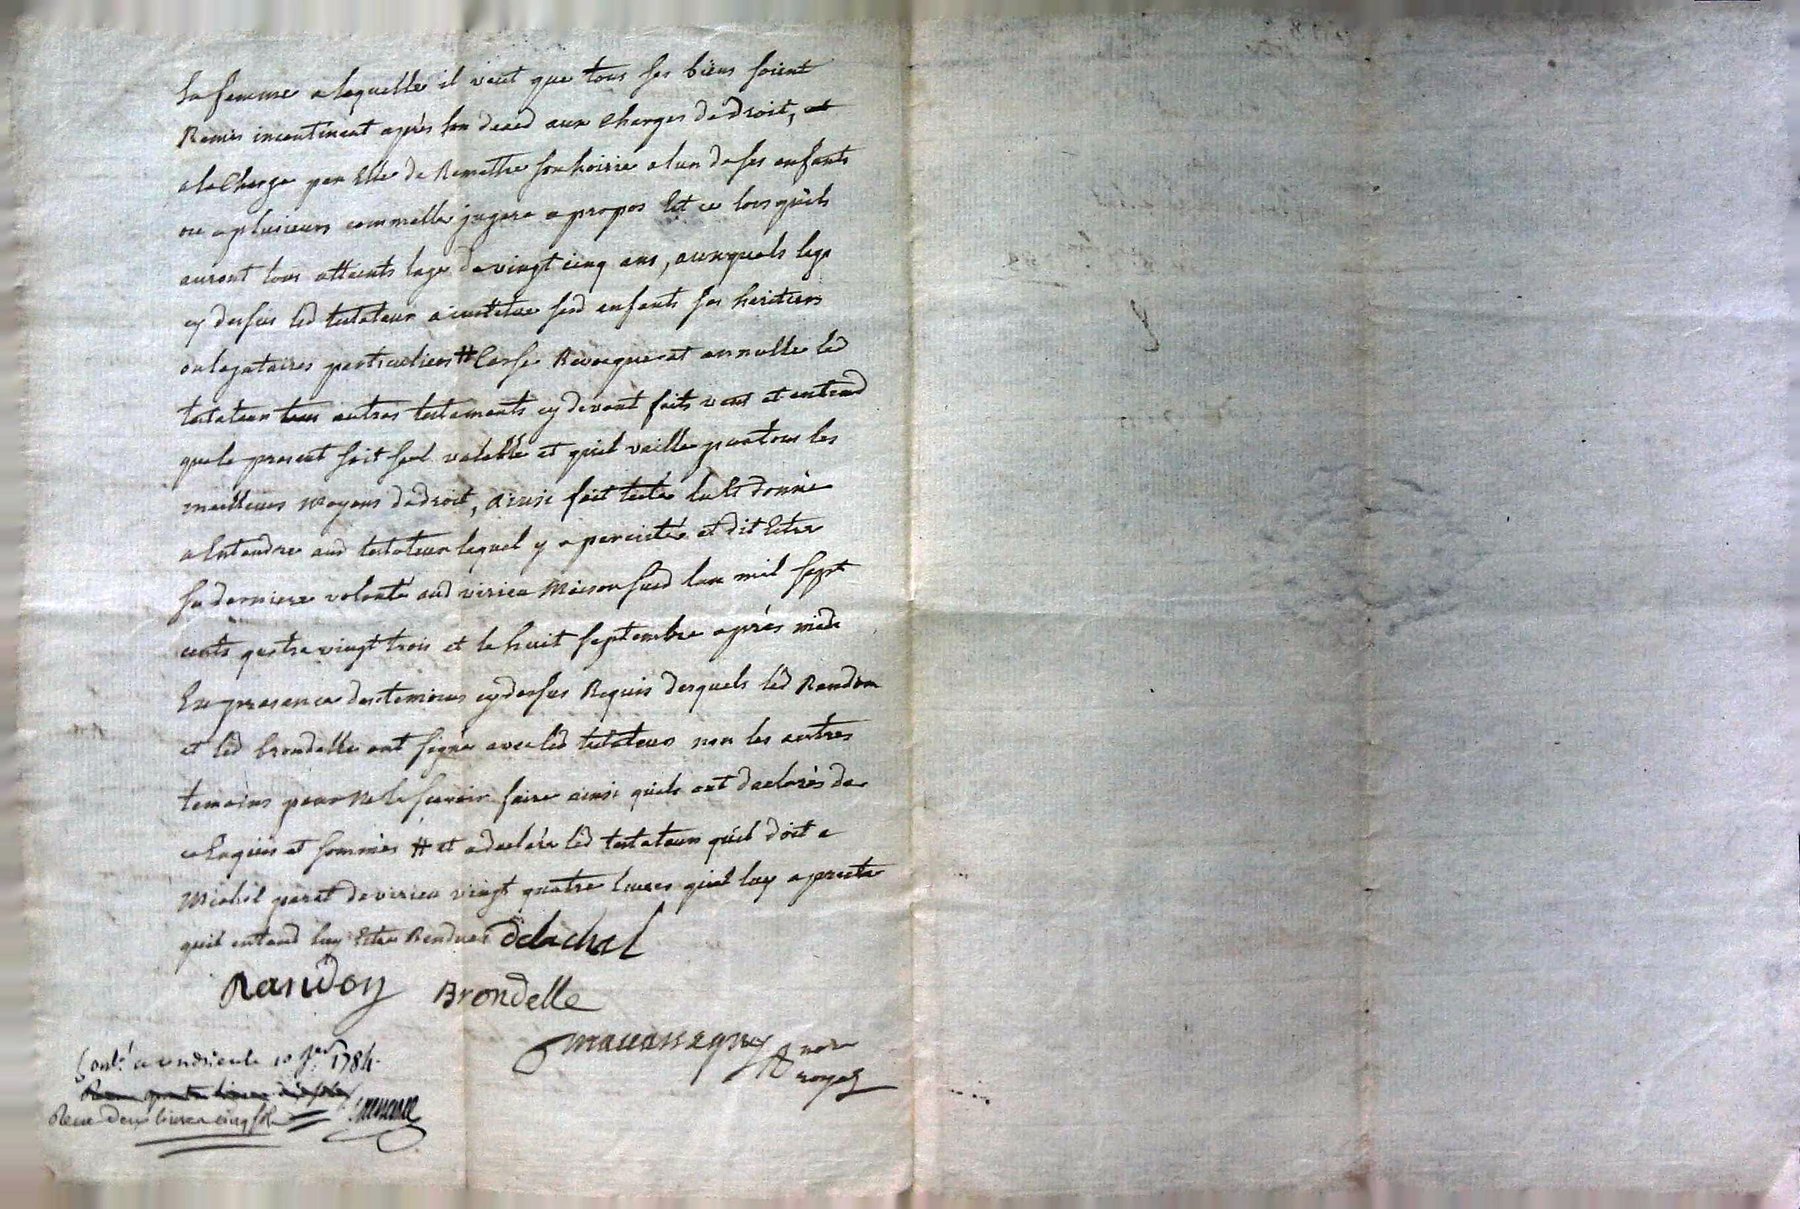 sa femme a laquelle il veut que tous ses biens soient
Remis incontinent après son deced aux Charges de droit, et
a la Charge par Elle de Remettre son hoirie a lun de ses enfants
ou a plusieurs comme elle jugera a propos Et ce lors quils
auront tous atteints lage de vingt cinq ans, auxquels legs
cy dessus led testateur a institue sesd enfants ses heritiers
ou legataires particuliers # Casse Revoque et annulle led
testateur tous autres testaments cy devant faits veut et entend
que le present soit seul valable et quil vaille par tous les
meilleurs moyens de droit, ainsi fait teste lu Et donné
a Entendre aud testateur lequel y a percisté et dit Etre
sa derniere volonté aud virieu Maison sued lan mil sept
cents quatre vingt trois et le huit septembre après midi
En presence des temoins cy dessus Requis desquels led Randon
et led brondelle ont signé avec led testateur non les autres
temoins pour ne le scavoir faire ainsi quils ont declarés de
ce Enquis et sommés # et a declaré led testateur quil doit a
Michel paret de virieu vingt quatre livres quil luy a presté
quil entend luy Etre Rendues delachal
Randon Brondelle
nore
royal
Cont. a 10 jer 1784.
Receu deux livres cinq sols